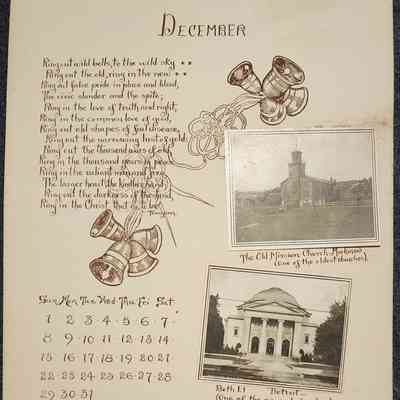 DECEMBER
Ring out wild bells, to the wild sky
Ring out the old, ring in the new
Ring out false pride in place and blood,
The civic slander and the spite;
Ring in the love of truth and right,
Ring in the common love of good,
Ring out old shapes of foul disease,
Ring out the narrowing lust of gold;
Ring out the thousand wars of old
Ring in the thousand years of peace
Ring in the valiant man and free
The larger heart the kindlier hand;
Ring out the darkness of the land,
Ring in the Christ that is to be.
Tennyson
The Old Mission Church
(One of the oldest churches)
Sun Mon Tue Wed Thu Fri Sat
1 2 3 4 5 6 7
8 9 10 11 12 13 14
15 16 17 18 19 20 21
22 23 24 25 26 27 28
29 30 31
Beth El Detroit
(One of the